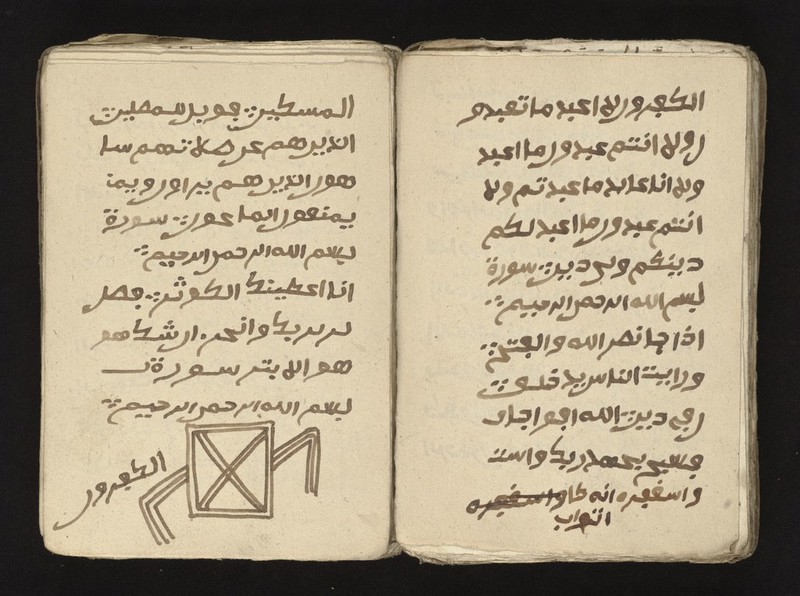 المسكين فويل للمصلين
الذين هم عن صلاتهم سا
هون الذين هم يراون ويمن
يمنعون الماعون سورة
بسم الله الرحمن الرحيم
انا اعطينك الكوثر فصل
لربك وانحر ان شكاهو
هو الابتر سورة
بسم الله الرحمن الرحيم
الكفرون
الكفرون لا اعبد ما تعبدو
ن ولا انتم عبدون ما اعبد
ولا انا عابد ما عبدتم ولا
انتم عبدون ما اعبد لكم
دينكم ولي دين سورة
بسم الله الرحمن الرحيم
اذا جا نصر الله والفتح
ورايت الناس يدخلون
في دين الله افواجا
فسبح بحمد ربك واست
واستغفره انه كا واستغفره
التواب